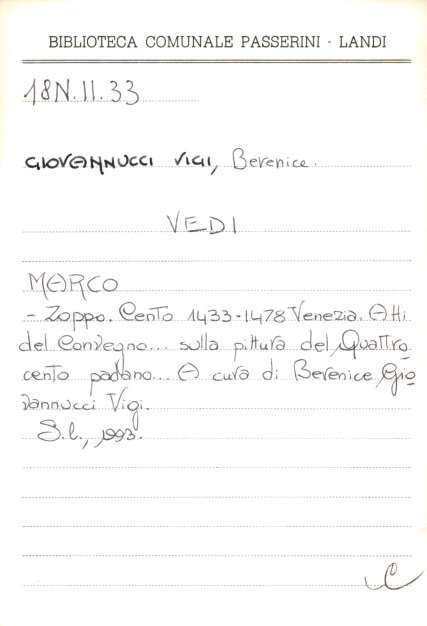 BIBLIOTECA COMUNALE PASSERINI - LANDI
18N.II.33
GIOVANNUCCI VIGI, Berenice.
VEDI
MARCO
- Zoppo. Cento 1433-1478 Venezia. Atti
del Convegno... sulla pittura del Quattro
cento padano... A cura di Berenice Gio
vannucci Vigi.
S.l., 1993.